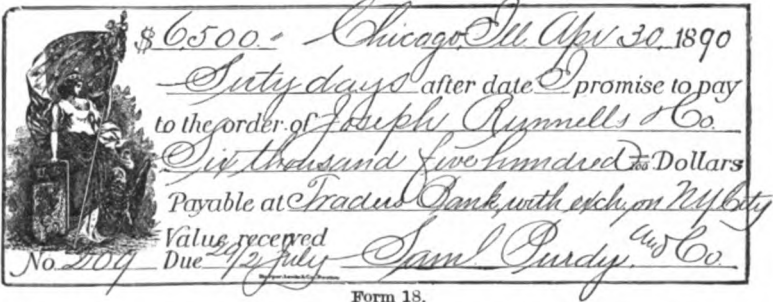 $6500.- Chicago, Ill. Apr 30, 1890
Sixty days after date I promise to pay
to the order of Joseph Runnells & Co.
Six thousand five hundred Dollars
Payable at Traders Bank, with exch, on NY City
Value received
No. 209 Due 29/2 July Saml. Purdy, and Co.
Form 18.